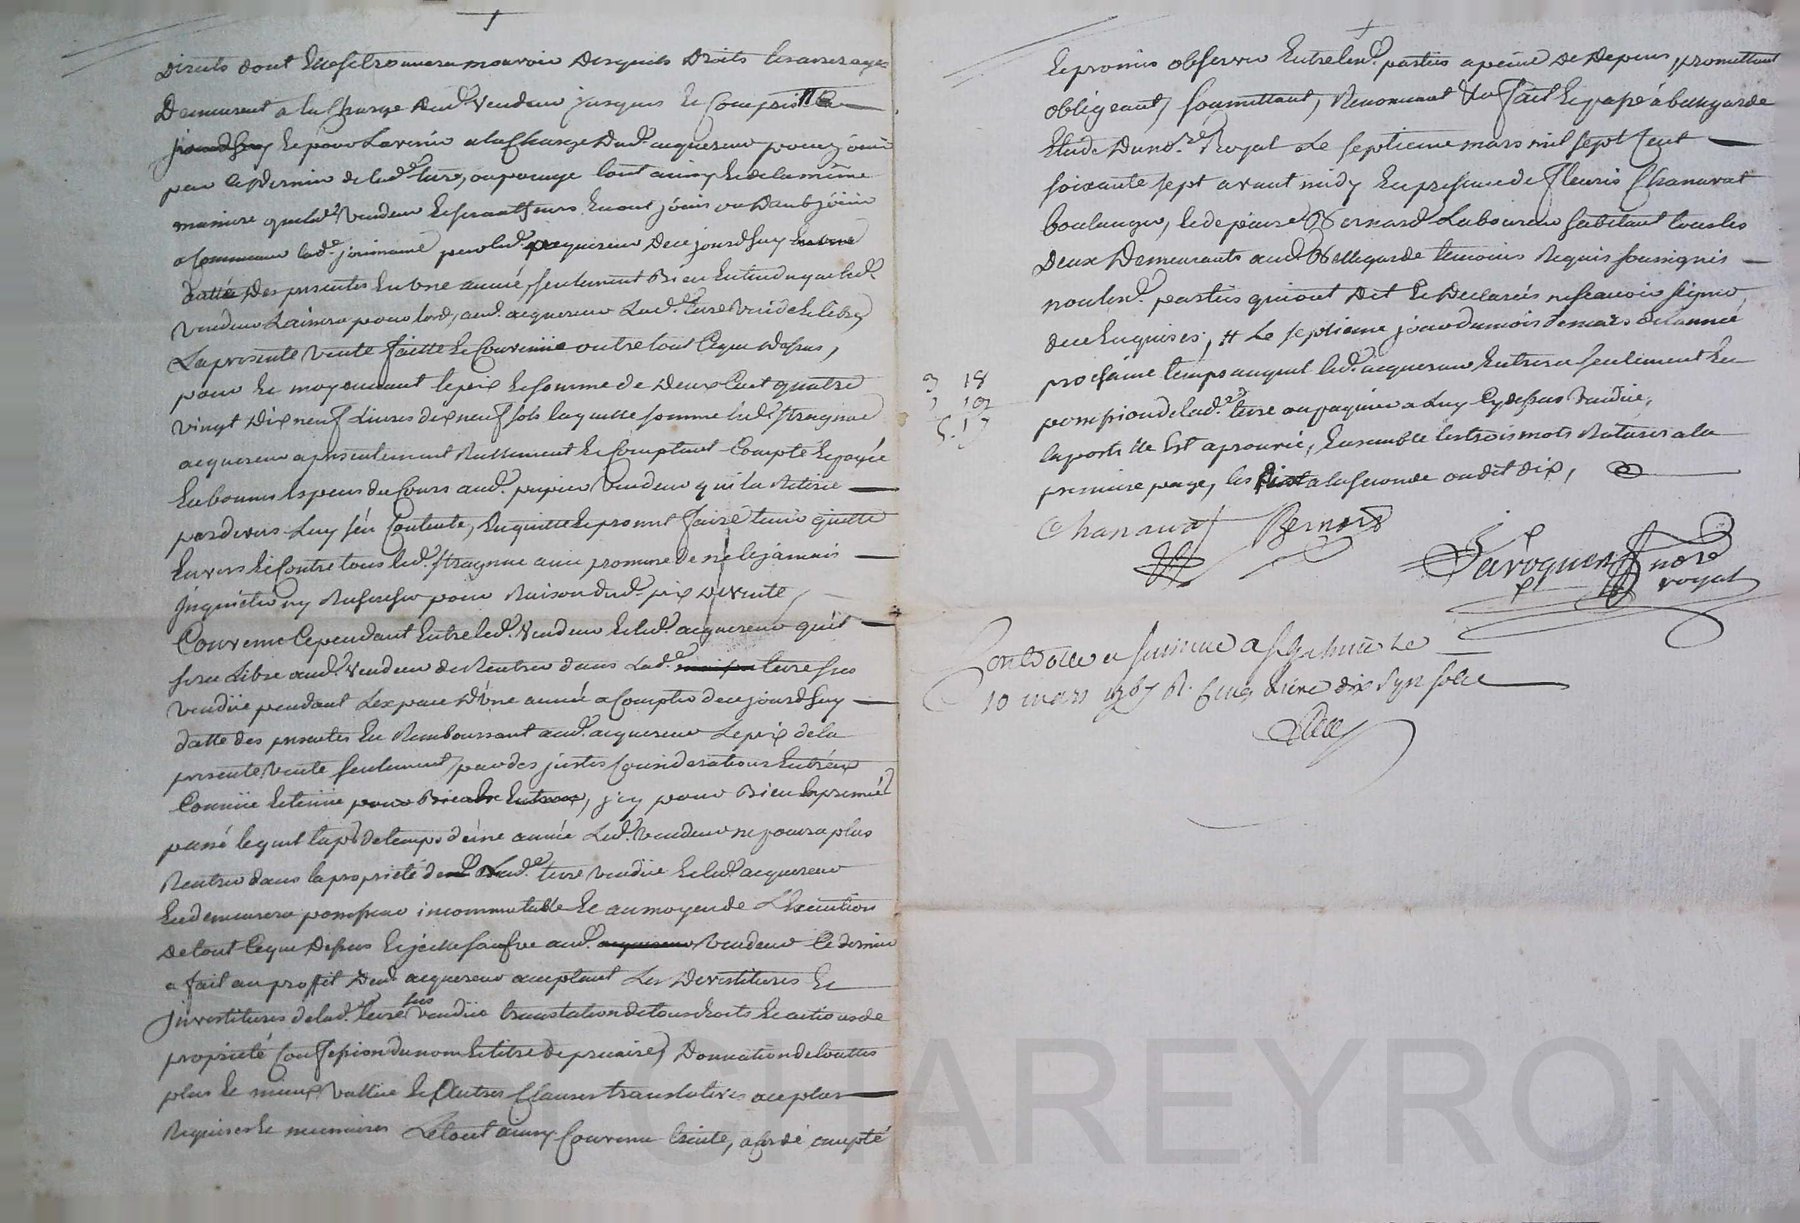 Directs dont Elle se trouvera mouvoir Desquels Droits les arrerages
Demeurent a la Charge dud.t Vendeur jusques Et Compris lle
jourdhuy Et pour Lavenir a la Charge Dud.t acquereur pour jouir
par ce Dernier de lad.e terre, ou pacage tout ainsy Et de la même
maniere que led.t Vendeur Et ses autheurs En ont joüis ou Deub joüir
a Commencer lad.e joüissance pour led.t acquereur De ce jourdhuy
datte Des presentes En Une année, seulement Bien Entendu que led.t
Vendeur Laissera pour lors, aud.t acquereur Lad.e terre Vuide Et libre,
La presente Vente faitte Et Convenüe outre tout Ce que dessus,
pour Et moyennant le prix Et somme de Deux Cent quatre
vingt Dix neuf Livres dix neuf sols laquelle somme led.t
acquereur a presentement Reellement Et Comptant Compté Et payée
En bonnes Especes du Cours aud.t Vendeur qui la Retirée
pardevers Luy s'en Contente, En quitte Et promet faire tenir quitte
Envers Et Contre tous led.t avec promesse de ne le jamais
Inquietter ny Rechercher pour Raison dud.t prix de Vente,
Convenu Cependant Entre led.t Vendeur Et led.t acquereur qu'il
sera Libre aud.t Vendeur de Rentrer dans Lad.e terre sus
Vendüe pendant L'espace D'une année a Compter de ce jourdhuy
datte des presentes En Remboursant aud.t acquereur Le prix de la
presente Vente seulement, par des justes Considerations Entr'eux
Connüe Et tenüe pour Bien Exprimée
passé lequel laps de temps d'une année Led.t Vendeur ne pourra plus
Rentrer dans la proprieté de Lad.e terre Vendüe Et led.t acquereur
En demeurera possesseur incommutable Et au moyen de L'Execution
De tout Ce que Dessus aud.t acquereur Vendeur Ce dernier
a fait au proffit Dud.t acquereur acceptant Les Devestitures Et
Investitures de lad.e terre sus Vendüe translation de tous droits Et actions de
proprieté Constitution du nom Et titre de precaire, Donnation de touttes
plus Et mieux Vallüe Et autres Clauses translatives au plus
Requises Et necessaires Le tout ainsy Convenu accepté
Et promis observer Entre les d. parties a peine De Depens, promettant
obligeant, soumettant, Renonceant &a fait Et passé a bellegarde
Etude Du no.re Royal Le septieme mars mil sept Cent
soixante sept avant midy En presence de Fleuris Chanavat
boulanger, Et de pierre Bernard Laboureur habitant tous les
Deux Demeurants aud.t Bellegarde temoins Requis soussignés
non les d. parties qui ont Dit Et Declarées ne scavoir signer,
de ce Enquises; # Le septieme jour du mois de mars de l'année
prochaine temps auquel led.t acquereur Entrera seulement En
possession de lad.e terre ou paquier a Luy Cy dessus Vendüe,
l'apostille Est aprouvée, Ensemble les trois mots Raturés a la
premiere page, les dix a la seconde on dit dix,
3 18
1 19
5. 17
Chanavat Bernard
Laroque no.re royal
Controllé a le
10 mars 1767 R. Cinq livres dix sept sols
CHAREYRON